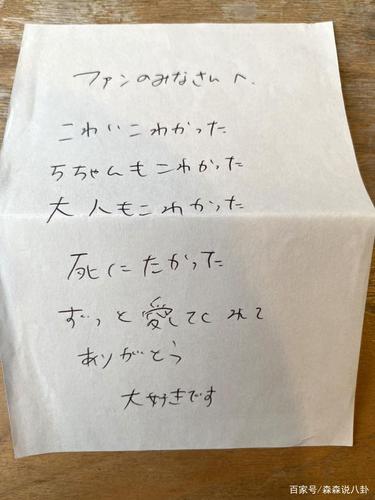 ファンのみなさんへ.
こわいこわかった
ちゃんもこわかった
大人もこわかった
死にたかった
ずっと愛してくれて
ありがとう
大好きです
百家号/森森说八卦